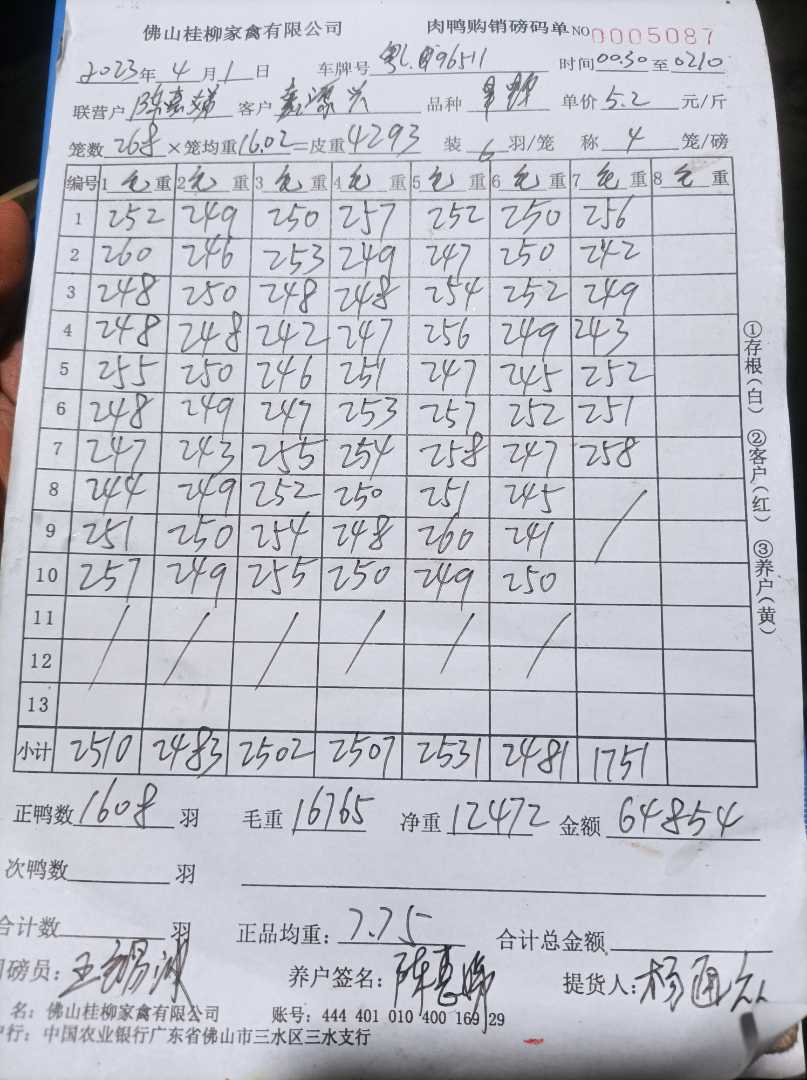 佛山桂柳家禽有限公司 肉鸭购销磅码单 NO 0005087
2023年4月1日 车牌号 粤L 96511 时间00:30至0210
联营户 陈惠娣 客户 兴 品种 单价5.2元/斤
笼数268×笼均重16.02=皮重4293 装6羽/笼 称4笼/磅
编号 1毛重 2毛重 3毛重 4毛重 5毛重 6毛重 7毛重 8毛重
1 252 249 250 257 252 250 256
2 260 246 253 249 247 250 242
3 248 250 248 248 254 252 249
4 248 248 242 247 256 249 243
5 255 250 246 251 247 245 252
6 248 249 247 253 257 252 251
7 247 243 255 254 258 247 258
8 244 249 252 250 251 245 /
9 251 250 254 248 260 241
10 257 249 255 250 249 250
11 / / / / / /
12
13
小计 2510 2483 2502 2507 2531 2481 1751
正鸭数1608羽 毛重16765 净重12472 金额64854
次鸭数 羽
合计数 羽 正品均重:7.75 合计总金额
磅员: 养户签名:陈惠娣 提货人:杨通
名:佛山桂柳家禽有限公司 账号:444 401 010 400 169 29
行:中国农业银行广东省佛山市三水区三水支行
①存根(白) ②客户(红) ③养户(黄)